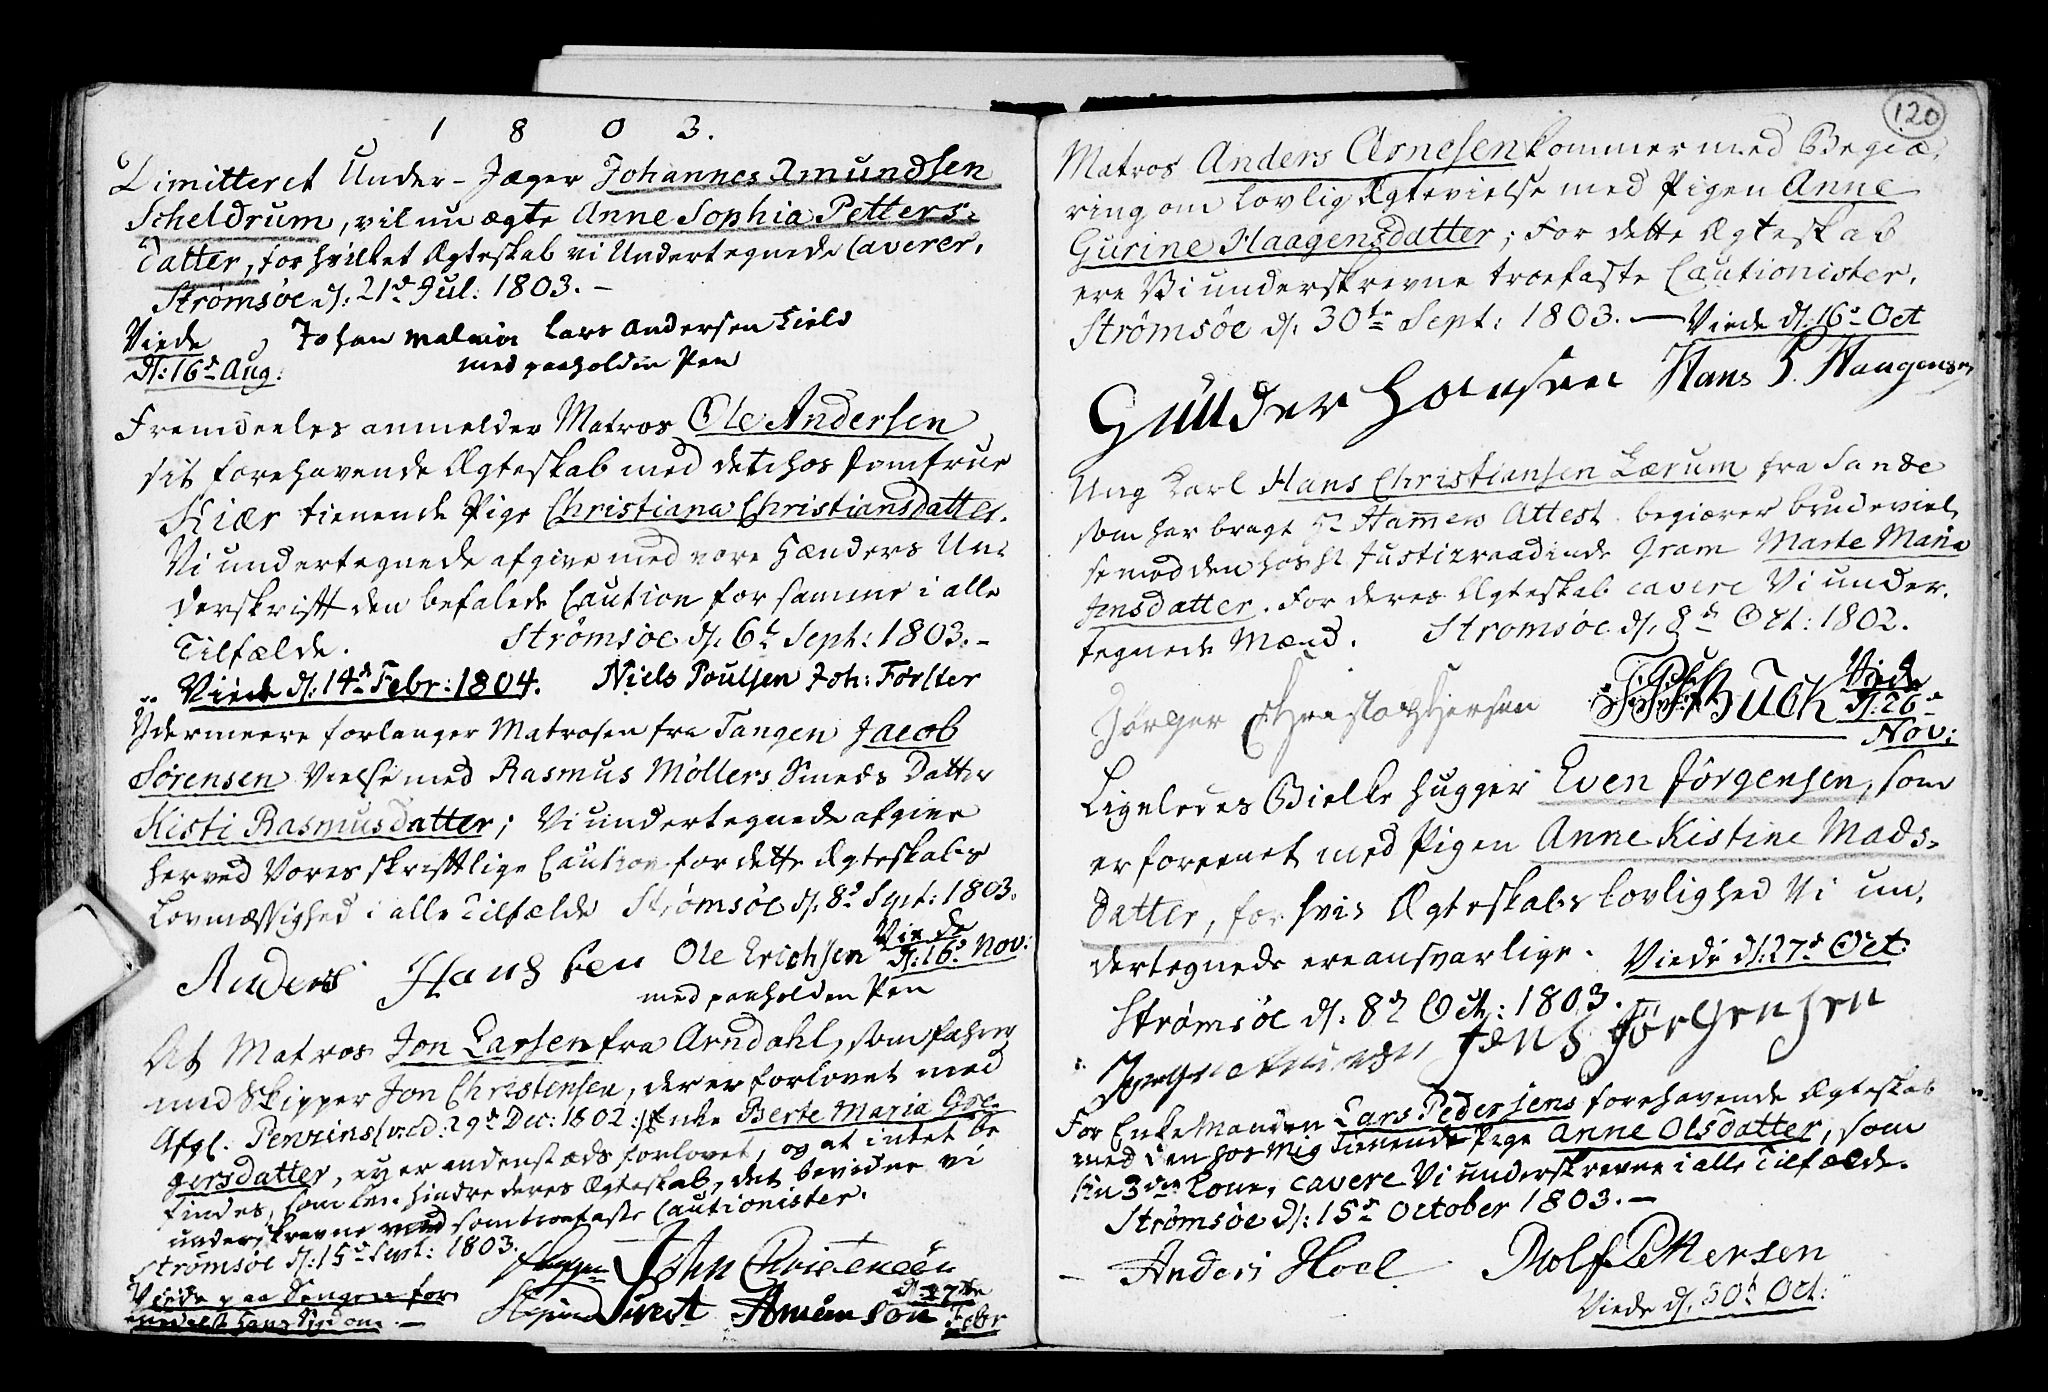 1 8 0 3.
Dimitteret Under-Jæger Johannes Amundsen
Scheldrum, vil nu ægte Anne Sophia Petters-
datter, for hvilket Ægteskab vi Undertegnede Caverer.
Strømsøe d: 21d Jul: 1803. –
Viede
d: 16d Aug:
Johan Lars Andersen Field
med paaholden Pen
Fremdeeles anmelder Matros Ole Andersen
sit forehavende Ægteskab med det hos Jomfrue
Kiær tienende Pige Christiana Christiansdatter.
Vi undertegnede afgive med vore Hænders Un-
derskrift den befalede Caution for samme i alle
Tilfælde. Strømsøe d. 6d Sept: 1803. –
Viede d: 14d Febr: 1804. Niels Poulsen Joh: Forster
Ydermeere forlanger Matrosen fra Tangen Jacob
Sørensen Vielse med Rasmus Møllers Smeds Datter
Kisti Rasmusdatter; Vi undertegnede afgive
herved Vores skriftlige Caution for dette Ægteskabs
Lovmæssighed i alle Tilfælde Strømsøe d. 8d Sept: 1803.
Anders Hansen Ole Erichsen Viede d: 16d Nov:
med paaholden Pen
At Matros Jon Larsen fra Arndahl, som fahrer
med Skipper Jon Christensen, der er forlovet med
Afgl. d: 29d Dec: 1802 Enke Berte Maria Gre-
gersdatter, ey er andenstæds forlovet, og at intet be
findes, som kan hindre deres Ægteskab, det bevidne vi
underskrevne med som troefaste Cautionister.
Strømsøe d: 15d Sept: 1803.
John Christensen
Viede paa Sengen for-
medelst hans Sygdom. – Amundsøn d 17de Febr
120
Matros Anders Arnesen kommer med Begiæ-
ring om lovlig Ægtevielse med Pigen Anne
Gurine Haagensdatter; For dette Ægteskab
ere Vi underskrevne troefaste Cautionister.
Strømsøe d: 30te Sept: 1803. — Viede d: 16d Oct
Gunder Hansen Hans P. Haagensen
Ung Karl Hans Christiansen Lærum fra Sande
som har bragt Hr Hammers Attest begiærer brudeviel-
se med den hos Justizraadinde Gram Marte Maria
Jensdatter. For deres Ægteskab cavere Vi under-
tegnede Mænd. Strømsøe d. 8d Oct: 1802.
Jørger Christophersen Bück Viede
d: 26d
Nov:
Ligeledes Bielke hugger Even Jørgensen, som
er foreenet med Pigen Anne Kistine Mads-
datter, for hvis Ægteskabs lovlighed Vi un-
dertegnede ere ansvarlige. Viede d: 27d Oct:
Strømsøe d: 8d Oct: 1803.
Jens Jörgensen
For Enkemanden Lars Pedersens forehavende Ægteskab
med den hos Mig tienende Pige Anne Olsdatter, som
sin 3die Kone, cavere Vi underskrevne i alle Tilfælde.
Strømsøe d: 15d October 1803. —
Anders Hoel Rolf Pettersen
Viede d. 30d Oct: